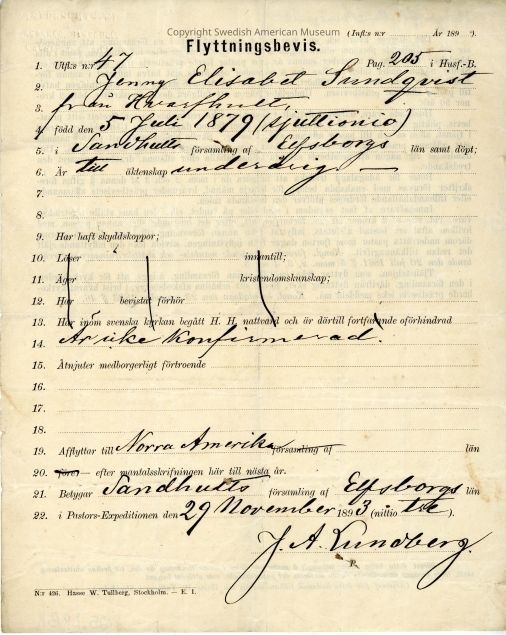 Copyright Swedish American Museum
(Infl:s n:r År 189 ).
Flyttningsbevis.
1. Utfl:s n:r 47 Pag. 205 i Husf.-B.
2. Jenny Elisabet Sundqvist
3. från Hvarfhult,
4. född den 5 Juli 1879 (sjuttionio)
5. i Sandhults församling af Elfsborgs län samt döpt;
6. Är till äktenskap underårig. —
7.
8.
9. Har haft skyddskoppor;
10. Läser innantill;
11. Äger kristendomskunskap;
12. Har bevistat förhör
13. Har inom svenska kyrkan begått H. H. nattvard och är därtill fortfarande oförhindrad
14. Är icke konfirmerad.
15. Åtnjuter medborgerligt förtroende
16.
17.
18.
19. Afflyttar till Norra Amerika församling af län
20. före — efter mantalsskrifningen här till nästa år.
21. Betygar Sandhults församling af Elfsborgs län
22. i Pastors-Expeditionen den 29 November 1893 (nittio tre).
J. A. Lundberg.
P.
N:r 426. Hasse W. Tullberg, Stockholm. — E. I.